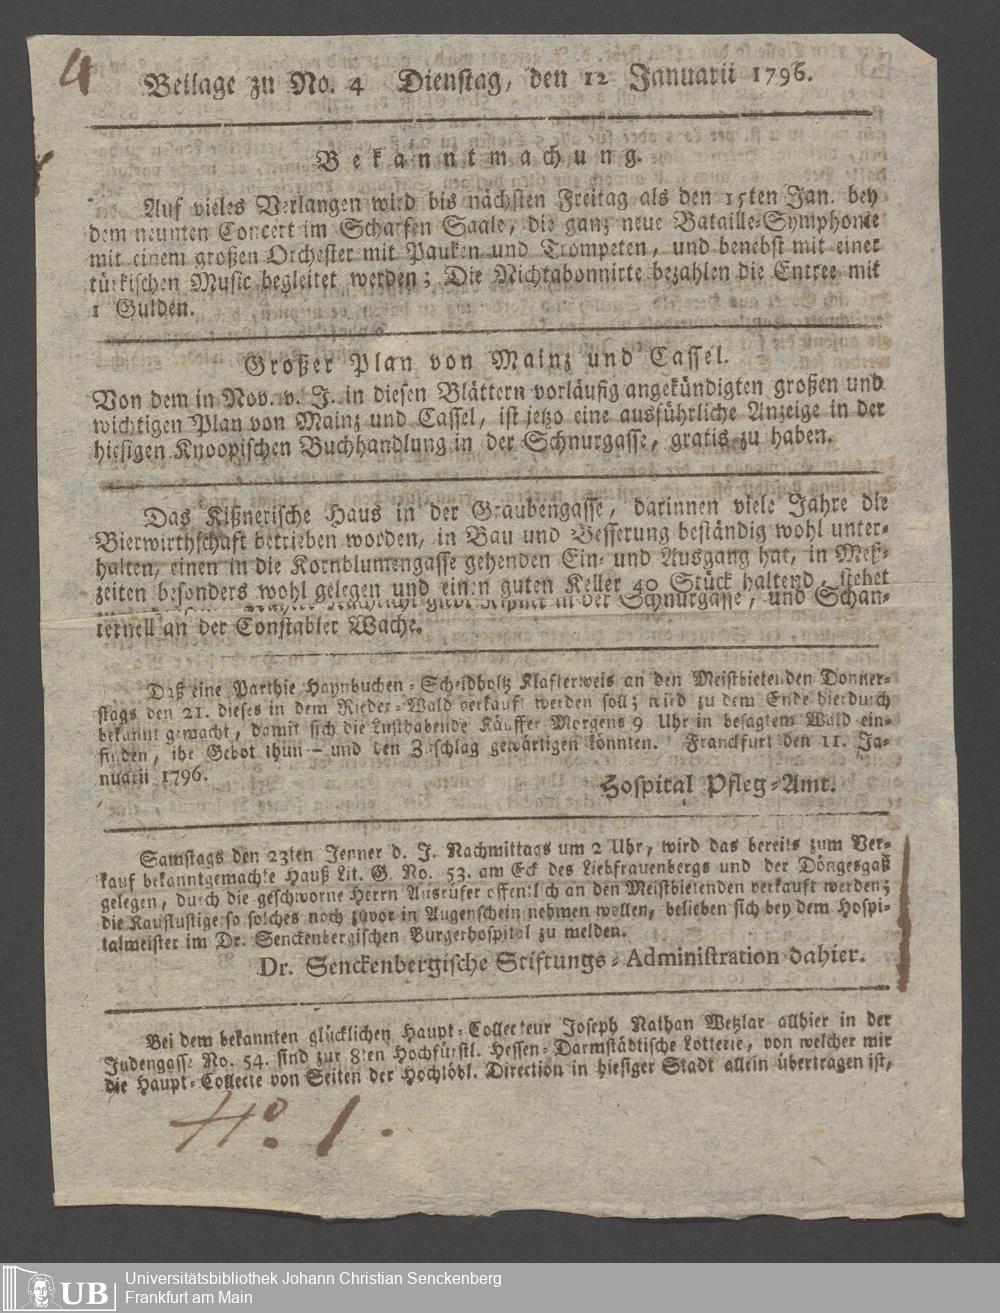 4
Beilage zu No. 4 Dienstag, den 12 Januarii 1796.
Bekanntmachung.
Auf vieles Verlangen wird bis nächsten Freitag als den 15ten Jan. bey
dem neunten Concert im Scharfen Saale, die ganz neue Bataille-Symphonie
mit einem großen Orchester mit Pauken und Trompeten, und benebst mit einer
türkischen Music begleitet werden; Die Nichtabonnirte bezahlen die Entree mit
1 Gulden.
Großer Plan von Mainz und Cassel.
Von dem in Nov. v. J. in diesen Blättern vorläufig angekündigten großen und
wichtigen Plan von Mainz und Cassel, ist jetzo eine ausführliche Anzeige in der
hiesigen Knoopischen Buchhandlung in der Schnurgasse, gratis zu haben.
Das Kißnerische Haus in der Graubengasse, darinnen viele Jahre die
Bierwirthschaft betrieben worden, in Bau und Besserung beständig wohl unter-
halten, einen in die Kornblumengasse gehenden Ein- und Ausgang hat, in Meß-
zeiten besonders wohl gelegen und einen guten Keller 40 Stück haltend, stehet
Nachricht giebt Kißner in der Schnurgasse, und Schan-
ternell an der Constabler Wache.
Daß eine Parthie Haynbuchen-Scheidholtz Klafterweis an den Meistbietenden Donner-
stags den 21. dieses in dem Rieder-Wald verkauft werden soll; wird zu dem Ende hierdurch
bekannt gemacht, damit sich die Lusthabende Käuffer Morgens 9 Uhr in besagtem Wald ein-
finden, ihr Gebot thun — und den Zuschlag gewärtigen könnten. Franckfurt den 11. Ja-
nuarii 1796.
Hospital Pfleg-Amt.
Samstags den 23ten Jenner d. J. Nachmittags um 2 Uhr, wird das bereits zum Ver-
kauf bekanntgemachte Hauß Lit. G. No. 53. am Eck des Liebfrauenbergs und der Döngesgaß
gelegen, durch die geschworne Herrn Ausrüfer offentlich an den Meistbietenden verkauft werden;
die Kauflustige so solches noch zuvor in Augenschein nehmen wollen, belieben sich bey dem Hospi-
talmeister im Dr. Senckenbergischen Burgerhospital zu melden.
Dr. Senckenbergische Stiftungs-Administration dahier.
Bei dem bekannten glücklichen Haupt-Collecteur Joseph Nathan Wetzlar allhier in der
Judengasse No. 54. sind zur 8ten Hochfürstl. Hessen-Darmstädtische Lotterie, von welcher mir
die Haupt-Collecte von Seiten der Hochlöbl. Direction in hiesiger Stadt allein übertragen ist,
No. 1.
UB
Universitätsbibliothek Johann Christian Senckenberg
Frankfurt am Main